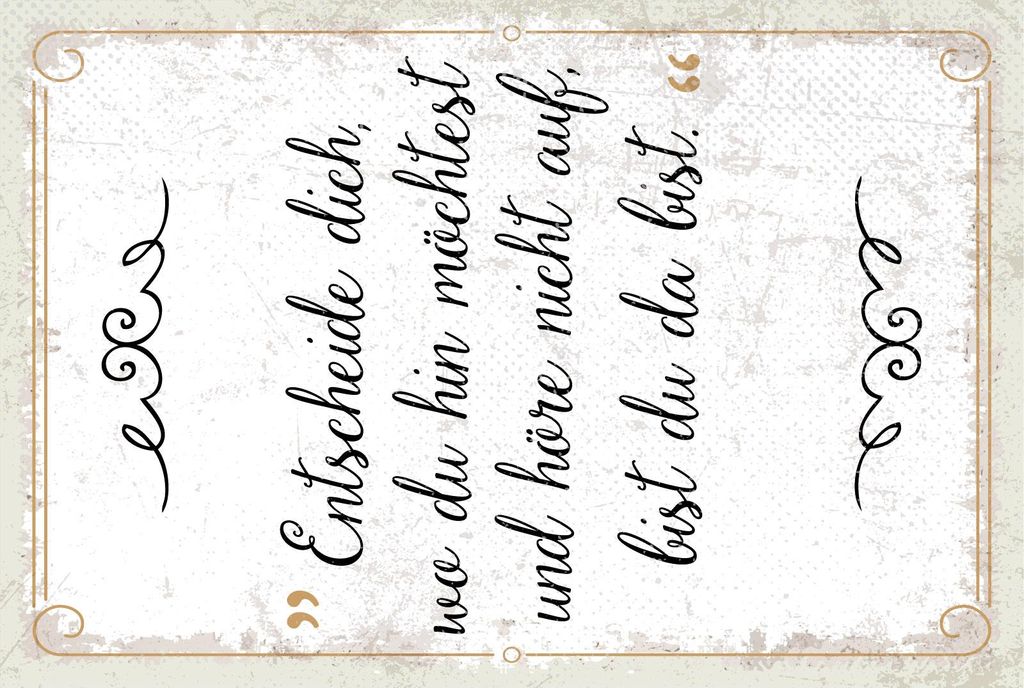 „Entscheide dich,
wo du hin möchtest
und höre nicht auf,
bist du da bist.“